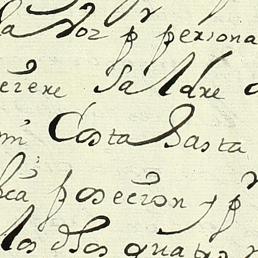 la Voz p persona
erere Saldre
mi Costa hasta
ca posecion y p
los dhos quatro